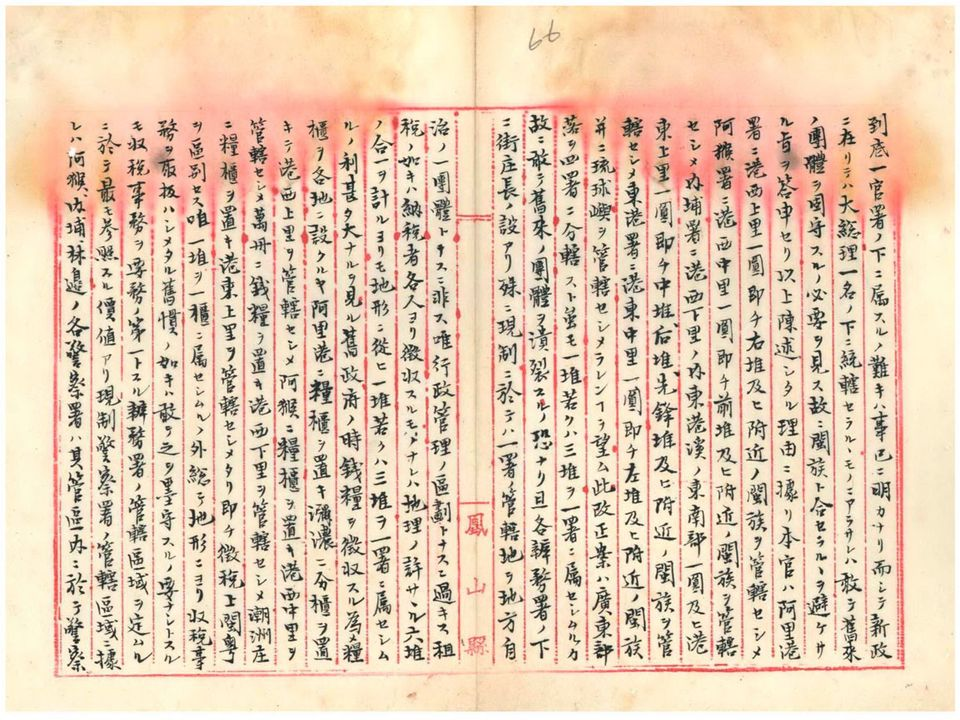 66
到底一官署ノ下ニ属スルノ難キハ事已ニ明カナリ而シテ新政
ニ在リテハ大総理一名ノ下ニ統轄セラルヽモノニアラサレハ敢テ舊來
ノ團體ヲ固守スルノ必要ヲ見ス故ニ閩族ト合セラルヽヲ避ケサ
ル旨ヲ答申セリ以上陳述シタル理由ニ據リ本官ハ阿里港
署ニ港西上里一圓即チ右堆及ヒ附近ノ閩族ヲ管轄セシメ
阿猴署ニ港西中里一圓即チ前堆及ヒ附近ノ閩族ヲ管轄
セシメ内埔署ニ港西下里ノ内東港溪ノ東南部一圓及ヒ港
東上里一圓即チ中堆后堆先鋒堆及ヒ附近ノ閩族ヲ管
轄セシメ東港署ニ港東中里一圓即チ左堆及ヒ附近ノ閩族
并ニ琉球嶼ヲ管轄セシメラレンヿヲ望ム此改正案ハ廣東部
落ヲ四署ニ分轄スト虽モ一堆若クハ三堆ヲ一署ニ属セシムルカ
故ニ敢テ舊來ノ團體ヲ潰裂スルノ恐ナリ且各辨務署ノ下
ニ街庄長ノ設アリ殊ニ現制ニ於テハ一署ノ管轄地ヲ地方自
治ノ一團體トナスニ非ス唯行政管理ノ區劃トナスニ過キス租
税ノ如キハ納税者各人ヨリ徴收スルモノナレハ地理ノ許サヽル六堆
ノ合一ヲ計ルヨリモ地形ニ從ヒ一堆若クハ三堆ヲ一署ニ属セシム
ルノ利甚タ大ナルヲ見ル舊政府ノ時錢糧ヲ徴収スル為メ糧
櫃ヲ各地ニ設クルキ阿里港ニ糧櫃ヲ置キ瀰濃ニ分櫃ヲ置
キテ港西上里ヲ管轄セシメ阿猴ニ糧櫃ヲ置キ港西中里ヲ
管轄セシメ萬丹ニ錢糧ヲ置キ港西下里ヲ管轄セシメ潮洲庄
ニ糧櫃ヲ置キ港東上里ヲ管轄セシメタリ即チ徴税上閩粤
ヲ區別セス唯一堆ヲ一櫃ニ属セシムルノ外総テ地形ニヨリ収税事
務ヲ取扱ハシメタル舊慣ノ如キハ敢テ之ヲ墨守スルノ要ナシトスル
モ収税事務ヲ要務ノ第一トスル辨務署ノ管轄區域ヲ定ムル
ニ於テ最モ参照スル價値アリ現制警察署ノ管轄區域ニ據
レハ阿猴、内埔林邊ノ各警察署ハ其管區内ニ於テ警察
鳳山縣